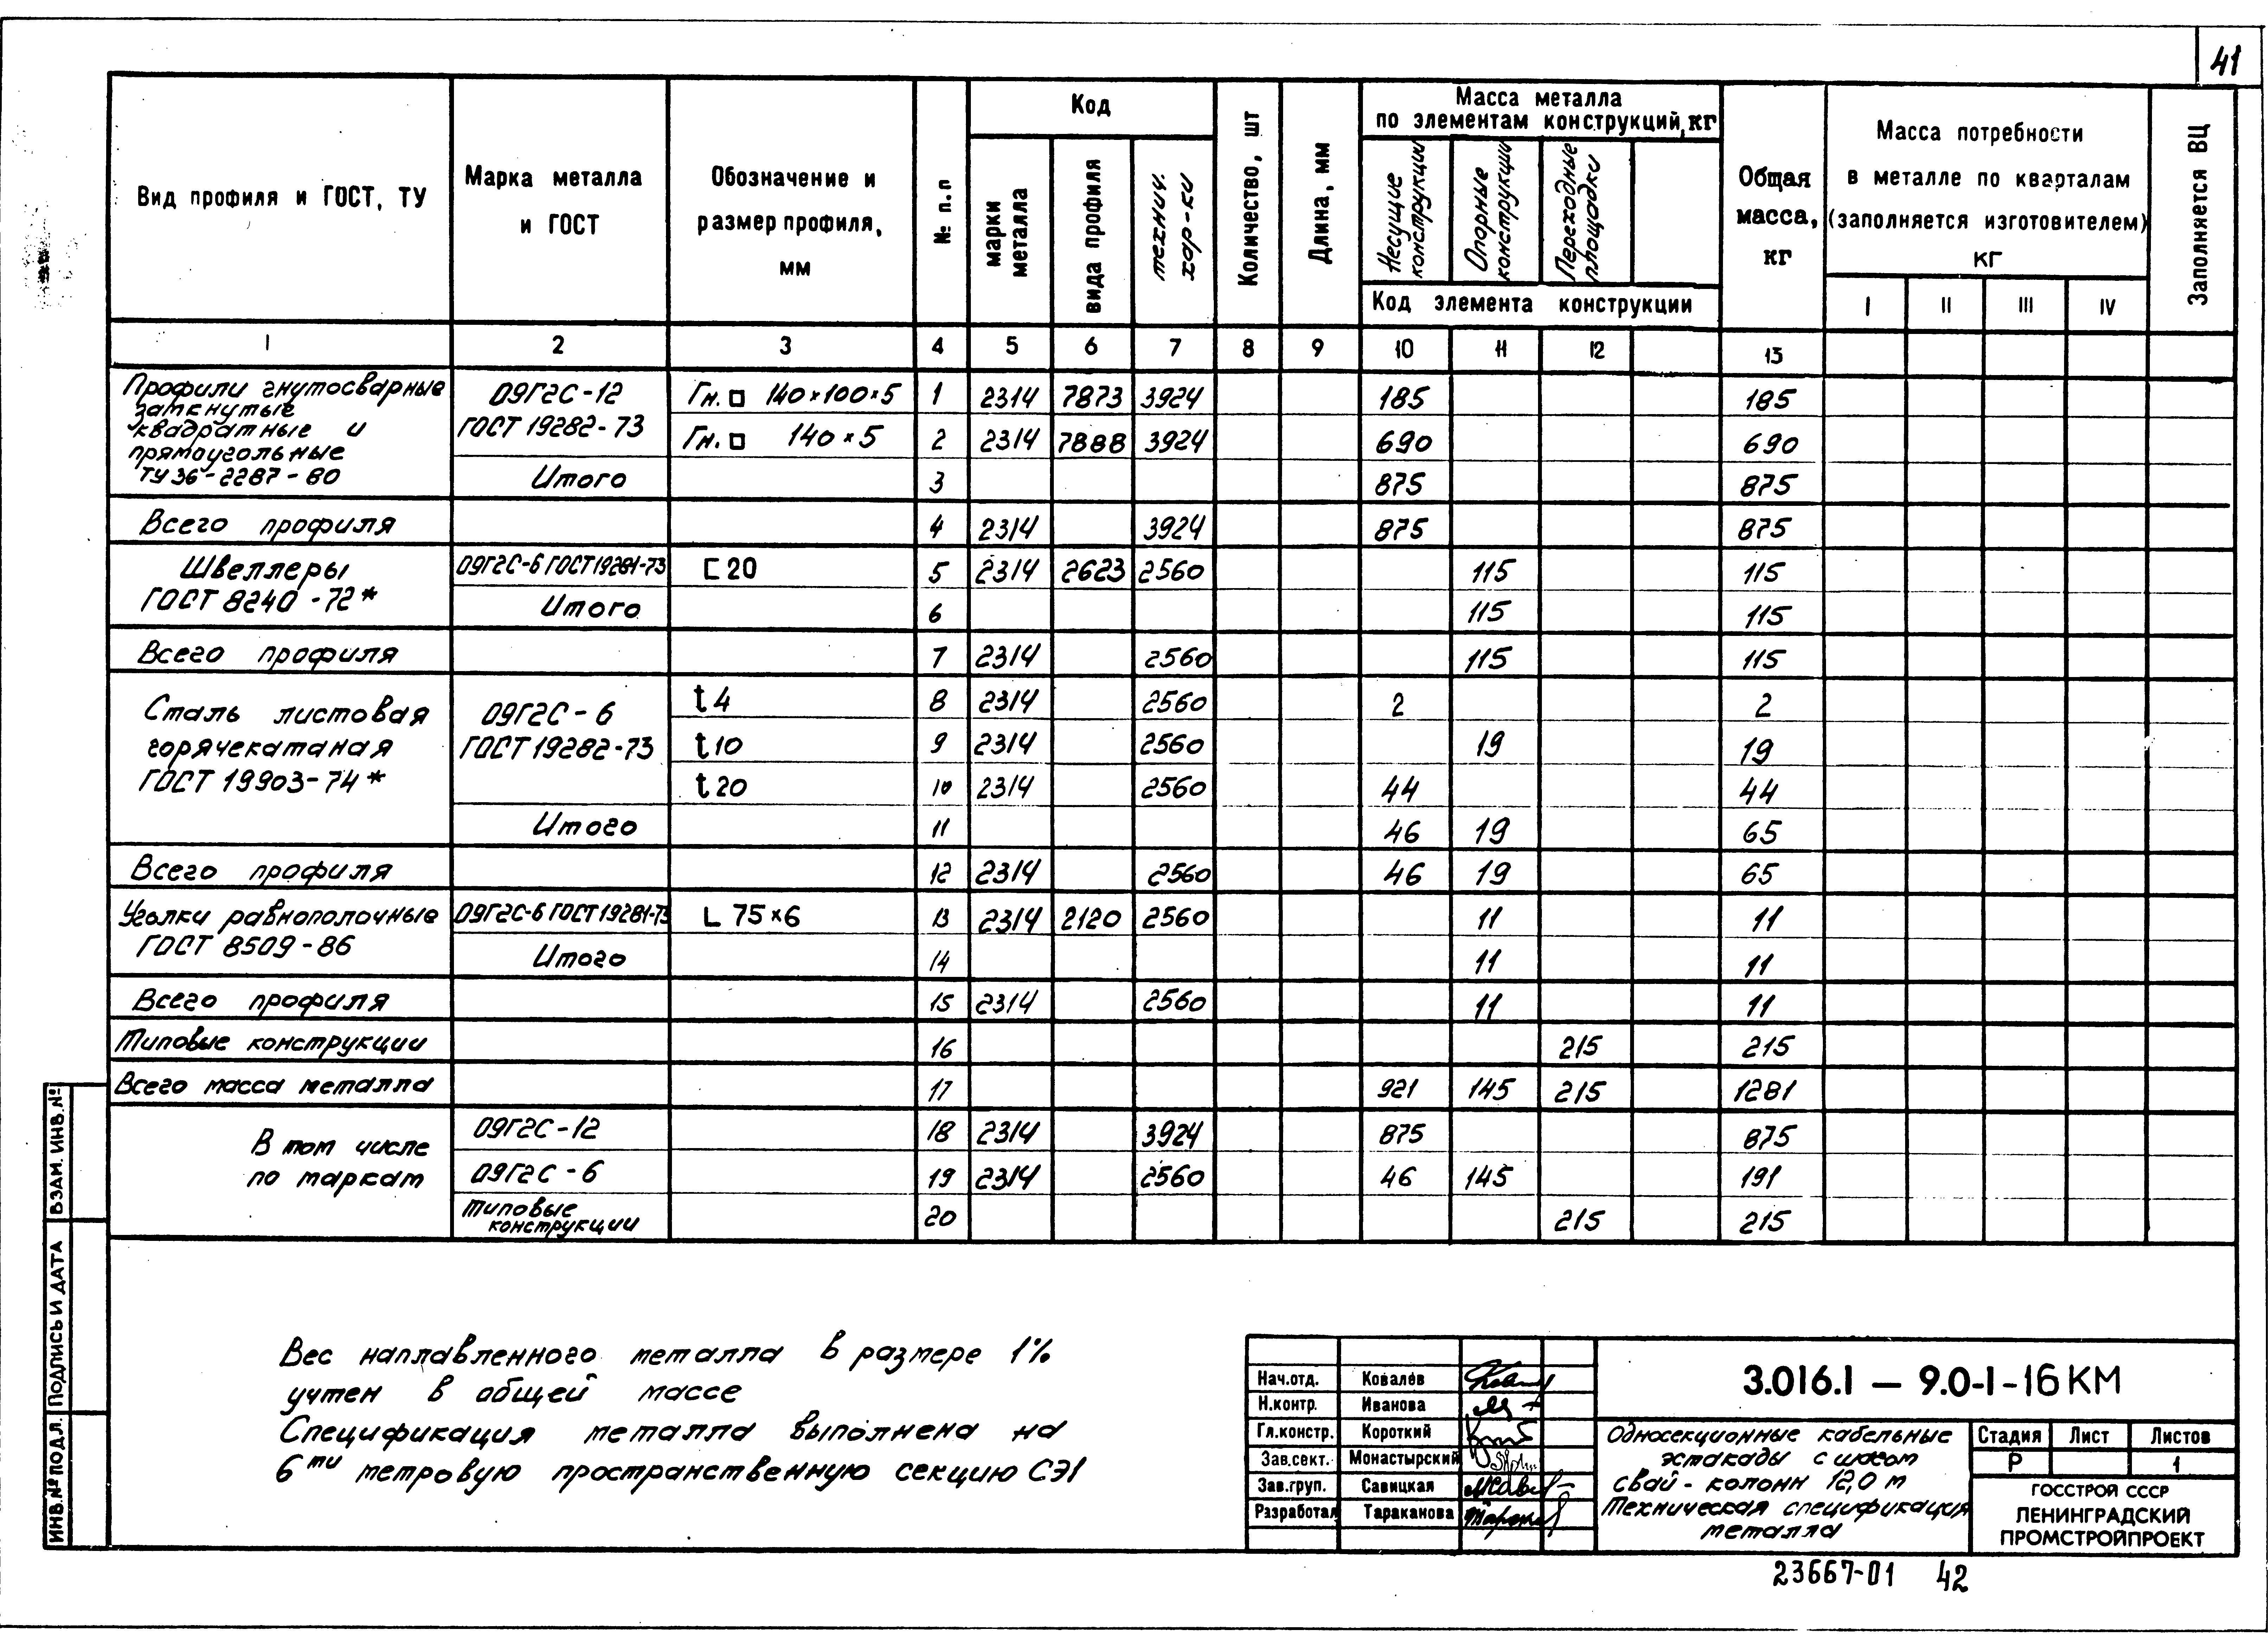 41
Вид профиля и ГОСТ, ТУ
Марка металла
и ГОСТ
Обозначение и
размер профиля,
мм
№ п.п
Код
марки
металла
вида профиля
технич.
хар-ки
Количество, шт
Длина, мм
Масса металла
по элементам конструкций, кг
Несущие
конструкции
Опорные
конструкции
Переходные
площадки
Код элемента конструкции
Общая
масса,
кг
Масса потребности
в металле по кварталам
(заполняется изготовителем)
кг
I II III IV
Заполняется ВЦ
1 2 3 4 5 6 7 8 9 10 11 12 13
Профили гнутосварные
замкнутые
квадратные и
прямоугольные
ТУ 36-2287-80
09Г2С-12
ГОСТ 19282-73
Гн. □ 140×100×5 1 2314 7873 3924 185 185
Гн. □ 140×5 2 2314 7888 3924 690 690
Итого 3 875 875
Всего профиля 4 2314 3924 875 875
Швеллеры
ГОСТ 8240-72*
09Г2С-6 ГОСТ 19281-73 [ 20 5 2314 2623 2560 115 115
Итого 6 115 115
Всего профиля 7 2314 2560 115 115
Сталь листовая
горячекатаная
ГОСТ 19903-74*
09Г2С-6
ГОСТ 19282-73
t 4 8 2314 2560 2 2
t 10 9 2314 2560 19 19
t 20 10 2314 2560 44 44
Итого 11 46 19 65
Всего профиля 12 2314 2560 46 19 65
Уголки равнополочные
ГОСТ 8509-86
09Г2С-6 ГОСТ 19281-73 L 75×6 13 2314 2120 2560 11 11
Итого 14 11 11
Всего профиля 15 2314 2560 11 11
Типовые конструкции 16 215 215
Всего масса металла 17 921 145 215 1281
В том числе
по маркам
09Г2С-12 18 2314 3924 875 875
09Г2С-6 19 2314 2560 46 145 191
Типовые
конструкции 20 215 215
Вес наплавленного металла в размере 1%
учтен в общей массе
Спецификация металла выполнена на
6ти метровую пространственную секцию СЭ1
ВЗАМ. ИНВ.№
ПОДПИСЬ И ДАТА
ИНВ.№ ПОДЛ.
Нач.отд. Ковалёв
Н.контр. Иванова
Гл.констр. Короткий
Зав.сект. Монастырский
Зав.груп. Савицкая
Разработал Тараканова
3.016.1 — 9.0-1-16 КМ
Односекционные кабельные
эстакады с шагом
свай-колонн 12,0 м
Техническая спецификация
металла
Стадия Лист Листов
Р 1
ГОССТРОЙ СССР
ЛЕНИНГРАДСКИЙ
ПРОМСТРОЙПРОЕКТ
23667-01 42